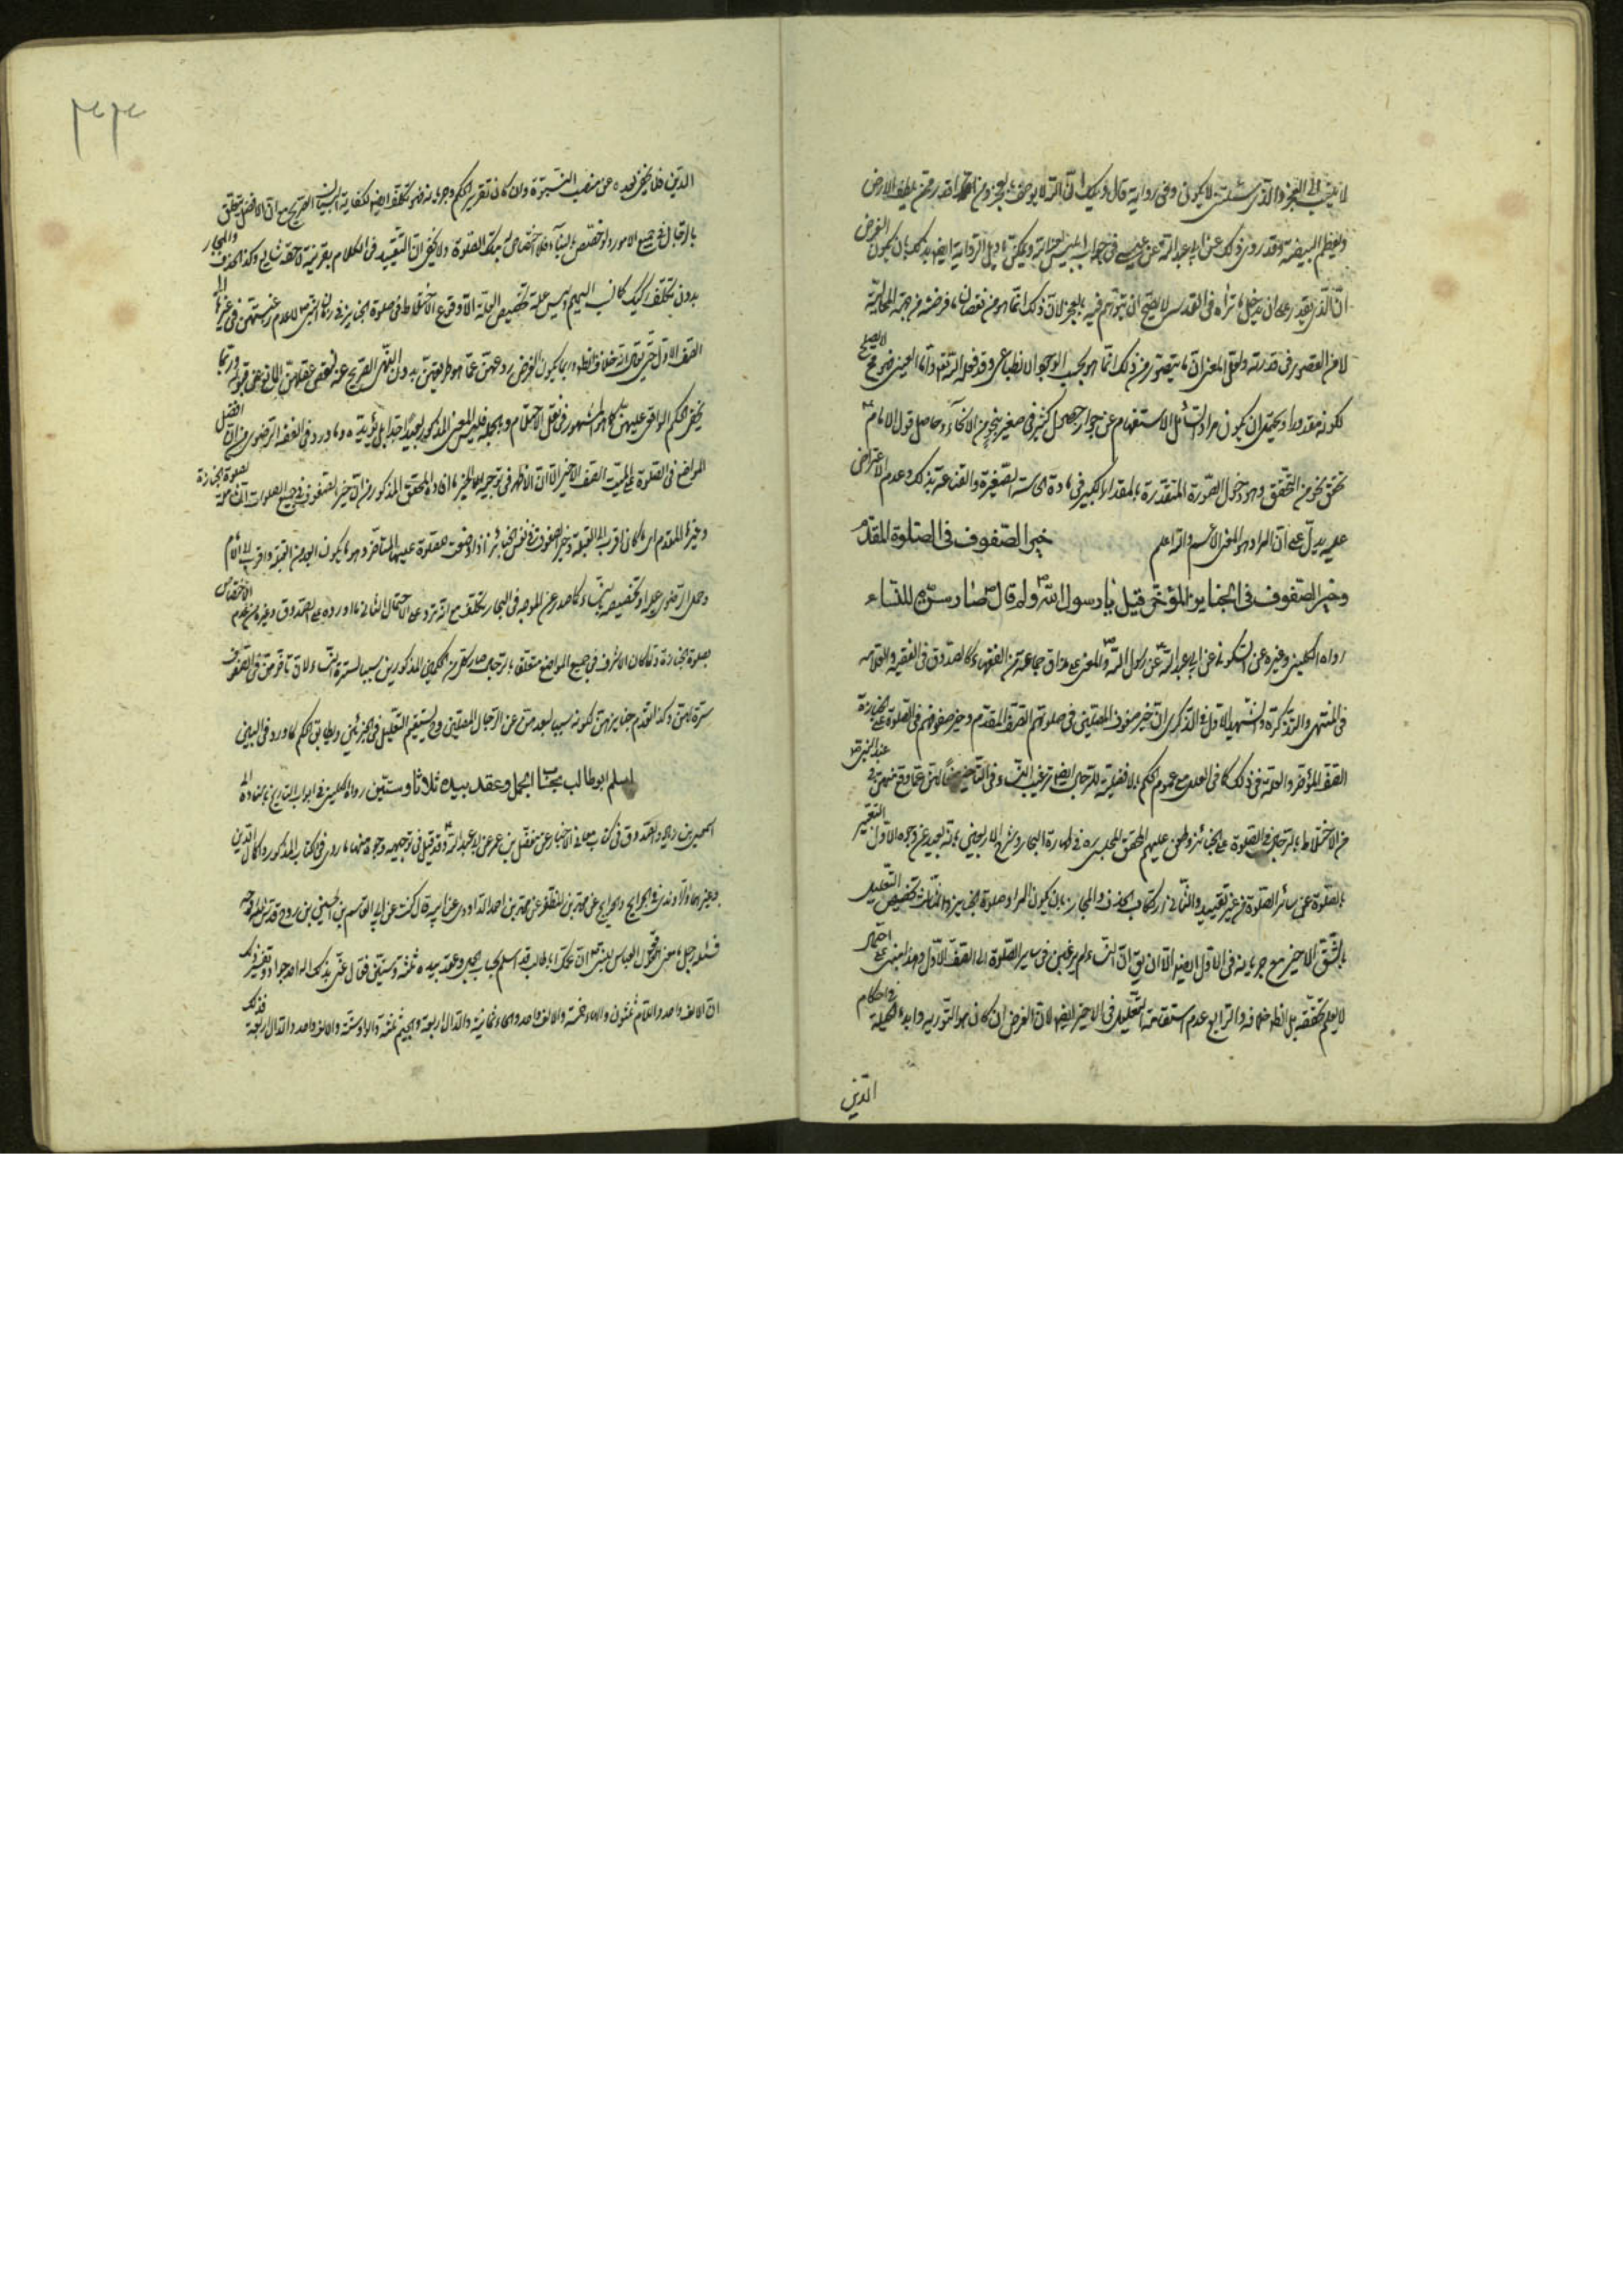 لا ينسب الى العجز والذي سئلتني لا يكون وفي رواية قال ويلك ان الله لا يوصف بالعجز ومن اقدر ممن يلطف الارض
ويعظم البيضة وقد روي ذلك عن ابي عبد الله عن عيسى في جواب ابليس ويمكن تاويل الرواية ايضا بذلك بان يكون الغرض
ان الذي يقدر على ان يدخل ما تراه في العدس لا يصح ان يتوهم فيه العجز لان ذلك انما هو من نقصان ما فرضته من جهة المحالية
لا من القصور في قدرته ولعل المعنى ان ما يتصور من ذلك انما هو بحسب الوجود الانطباعي وقد فعله الله تعالى واما العيني فهو محال لا يصلح
لكونه مقدورا ويحتمل ان يكون مراد السائل الاستفهام عن جواز حصول كبير في صغير بنحو من الانحاء وحاصل قول الامام
تحقق نحو من التحقق وهو دخول الصورة المتقدرة بالمقدار الكبير في مادة الحاسة الصغيرة والقناعة بذلك وعدم الاعتراض
عليه يدل على ان المراد هو المعنى الاعم والله اعلم خير الصفوف في الصلوة المقدم
وخير الصفوف في الجنايز المؤخر قيل يا رسول الله ولم قال صار سترة للنساء
رواه الكليني وغيره عن السكوني عن ابي عبد الله عن رسول الله والمعنى على مذاق جماعة من الفقهاء كالصدوق في الفقيه والعلامة
في المنتهى والتذكرة والشهيد الاول في الذكرى ان خير صفوف المصلين في صلوتهم الصف المقدم وخير صفوفهم في الصلوة على الجنازة
الصف المؤخر والعلة في ذلك كما في العلل مع عموم الحكم بالافضلية للرجال ايضا ترغيب النساء في التأخر منعا لهن عما وقع منهن في عهد النبي
من الاختلاط بالرجال في الصلوة على الجنائز وطعن عليهم المحقق المجلسي ره في طهارة البحار وشرح الاربعين بانه بعيد عن وجوه الاول التعبير
بالصلوة عن سائر الصلوة من غير تقييد والثاني ارتكاب الحذف والمجاز بان يكون المراد صلوة الجنايز والثالث تخصيص التعليل
بالشق الاخير مع جريانه في الاول ايضا الا ان يق ان النساء لم يرغبن في ساير الصلوة الى الصف الاول وهذا مبني على احتمال
لا يعلم تحققه بل الظ خلافه والرابع عدم استقامة التعليل في الاخير ايضا لان الغرض ان كان هو التورية وابداء الحيلة في احكام
الدين
الدين فلا يخفى بعده عن منصب النبوة وان كان تقرير الحكم وجريانه فهو تكلف ايضا لكفاية البيان الصريح مع ان الافضل يتعلق
بالرجال في جميع الامور ولو اختص بالنساء فلا اختصاص له بتلك الصلوة ولا يخفى ان التقييد في الكلام بقرينة لاحقة شايع وكذا الحذف والمجاز
بدون تكلف ركيك كما نسب اليهم وليس علة تخصيص العلة الا وقوع الاختلاط في صلوة الجنايز في زمان النبي ص لا عدم رغبتهن في غيرها الى
الصف الاول حتى يقال انه خلاف الظ وربما يكون الغرض ردعهن عما هو طريقتهن بدون النهي الصريح عنه لنقص عقلهن المانع عن قبوله وربما
يخفى الحكم الواقعي عليهن كما هو المشهور في نقل الاحتلام وبالجملة فليس المعنى المذكور بعيدا جدا بل يؤيده ما ورد في الفقه الرضوي من ان افضل
المواضع في الصلوة على الميت الصف الاخير الا ان الاظهر في توجيه الخبر ما افاده المحقق المذكور من ان خير الصفوف في جميع الصلوات لصلوة الجنازة
وغيرها المقدم اي ما كان اقرب الى القبلة وخير الصفوف في نفس الجنائز اذا وضعت للصلوة عليها المتاخر وهو ما يكون ابعد من القبلة واقرب الى الامام
وحمل الرضوي عليه او تخصيصه بالنساء كما صدر عن الموجه في البحار تكلف مع انه تردد على الاحتمال الثاني ما اورده على الصدوق وغيره من عدم الاختصاص
بصلوة الجنازة ولما كان الاشرف في جميع المواضع متعلقا بالرجال صار كل من الحكمين المذكورين سببا لسترة النساء لان تاخرهن في الصفوف
سترة لهن وكذا تقدم جنايزهن لكونه سببا لبعدهن عن الرجال المصلين فح يستقيم التعليل في الجزئين ويطابق الحكم لما ورد في البين
اسلم ابو طالب بحساب الجمل وعقد بيده ثلاثا وستين رواه الكليني في ابواب التاريخ باسناده الى
اسمعيل بن ابي زياد والصدوق في كتاب معاني الاخبار عن مفضل بن عمر عن ابي عبد الله وقد قيل في توجيهه وجوه منها ما روي في الكتاب المذكور وكمال الدين
وغيرهما والراوندي في الخرايج والجرايح عن محمد بن المظفر عن محمد بن احمد الداودي عن ابيه قال كنت عند ابي القاسم الحسين بن روح قدس الله روحه
فسئله رجل ما معنى قول العباس للنبي ان عمك ابا طالب قد اسلم بحساب الجمل وعقد بيده ثلثة وستين فقال عنى بذلك اله احد جواد وتفسير ذلك
ان الالف واحد واللام ثلثون والهاء خمسة والالف واحد والحاء ثمانية والدال اربعة والجيم ثلثة والواو ستة والالف واحد والدال اربعة فذلك